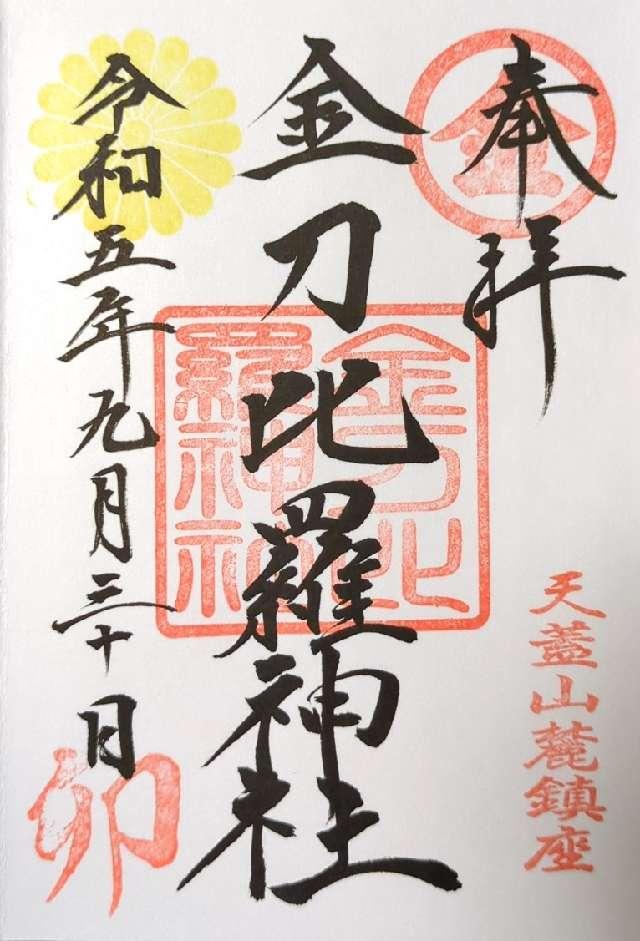 奉拝
金
天蓋山麓鎮座
金刀比羅神社
金刀比
羅神社
令和五年九月三十日
卯